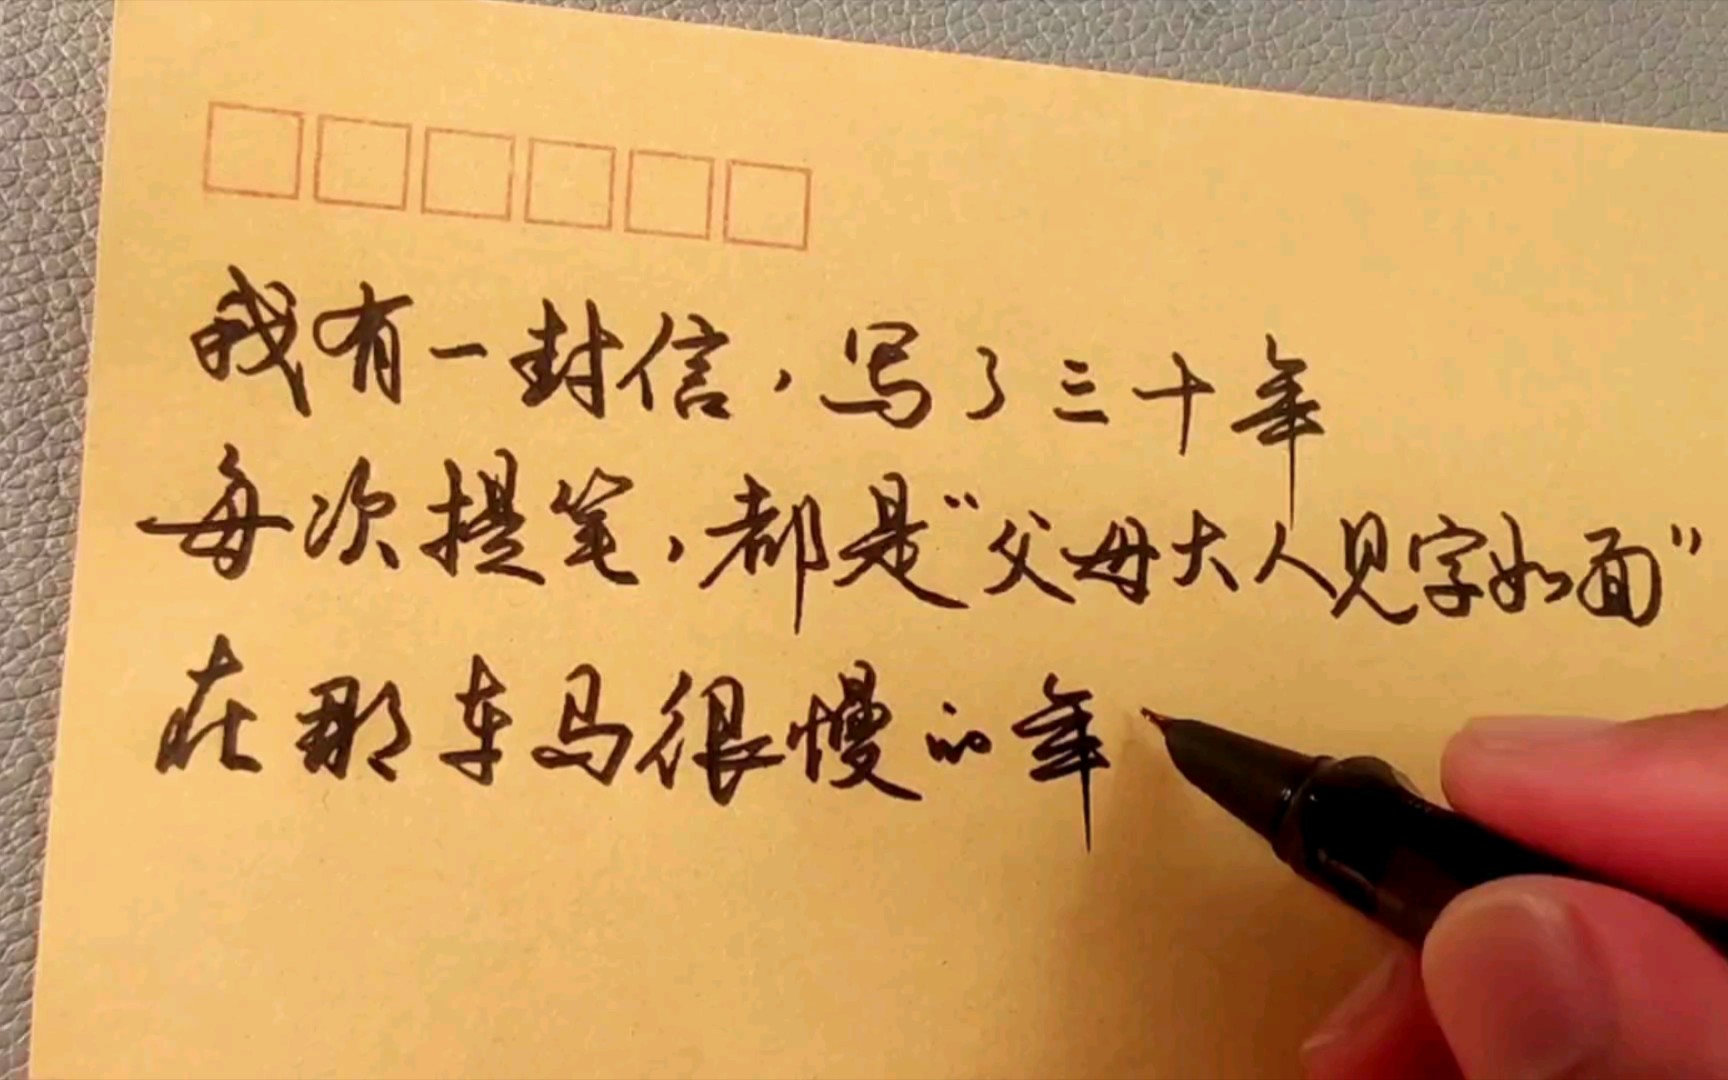 我有一封信，写了三十年
每次提笔，都是“父母大人见字如面”
在那车马很慢的年